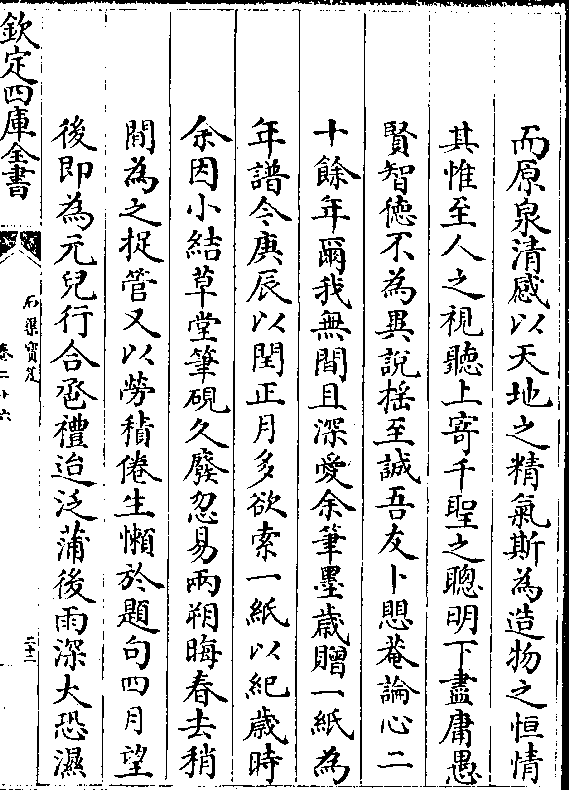 而原泉清感以天地之精氣斯為造物之恒情
其惟至人之視聽上寄千聖之聰明下盡庸愚
賢智徳不為異說揺至誠吾友卜愳菴論心二
十餘年爾我無間且深愛余筆墨歳贈一紙為
年譜今庚辰以閏正月多欲索一紙以紀歳時
余因小結草堂筆硯久廢忽易兩朔晦春去稍
間為之捉管又以勞積倦生懶於題句四月望
後即為元兒行合巹禮迨泛蒲後雨深大恐濕
欽定四庫全書
石渠寶笈
卷二十六
三十二